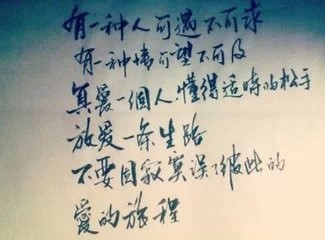 有一种人可遇不可求
有一种情可望不可及
真爱一個人,懂得适時的松手
放爱一条生路
不要因寂寞误了彼此的
愛的旅程